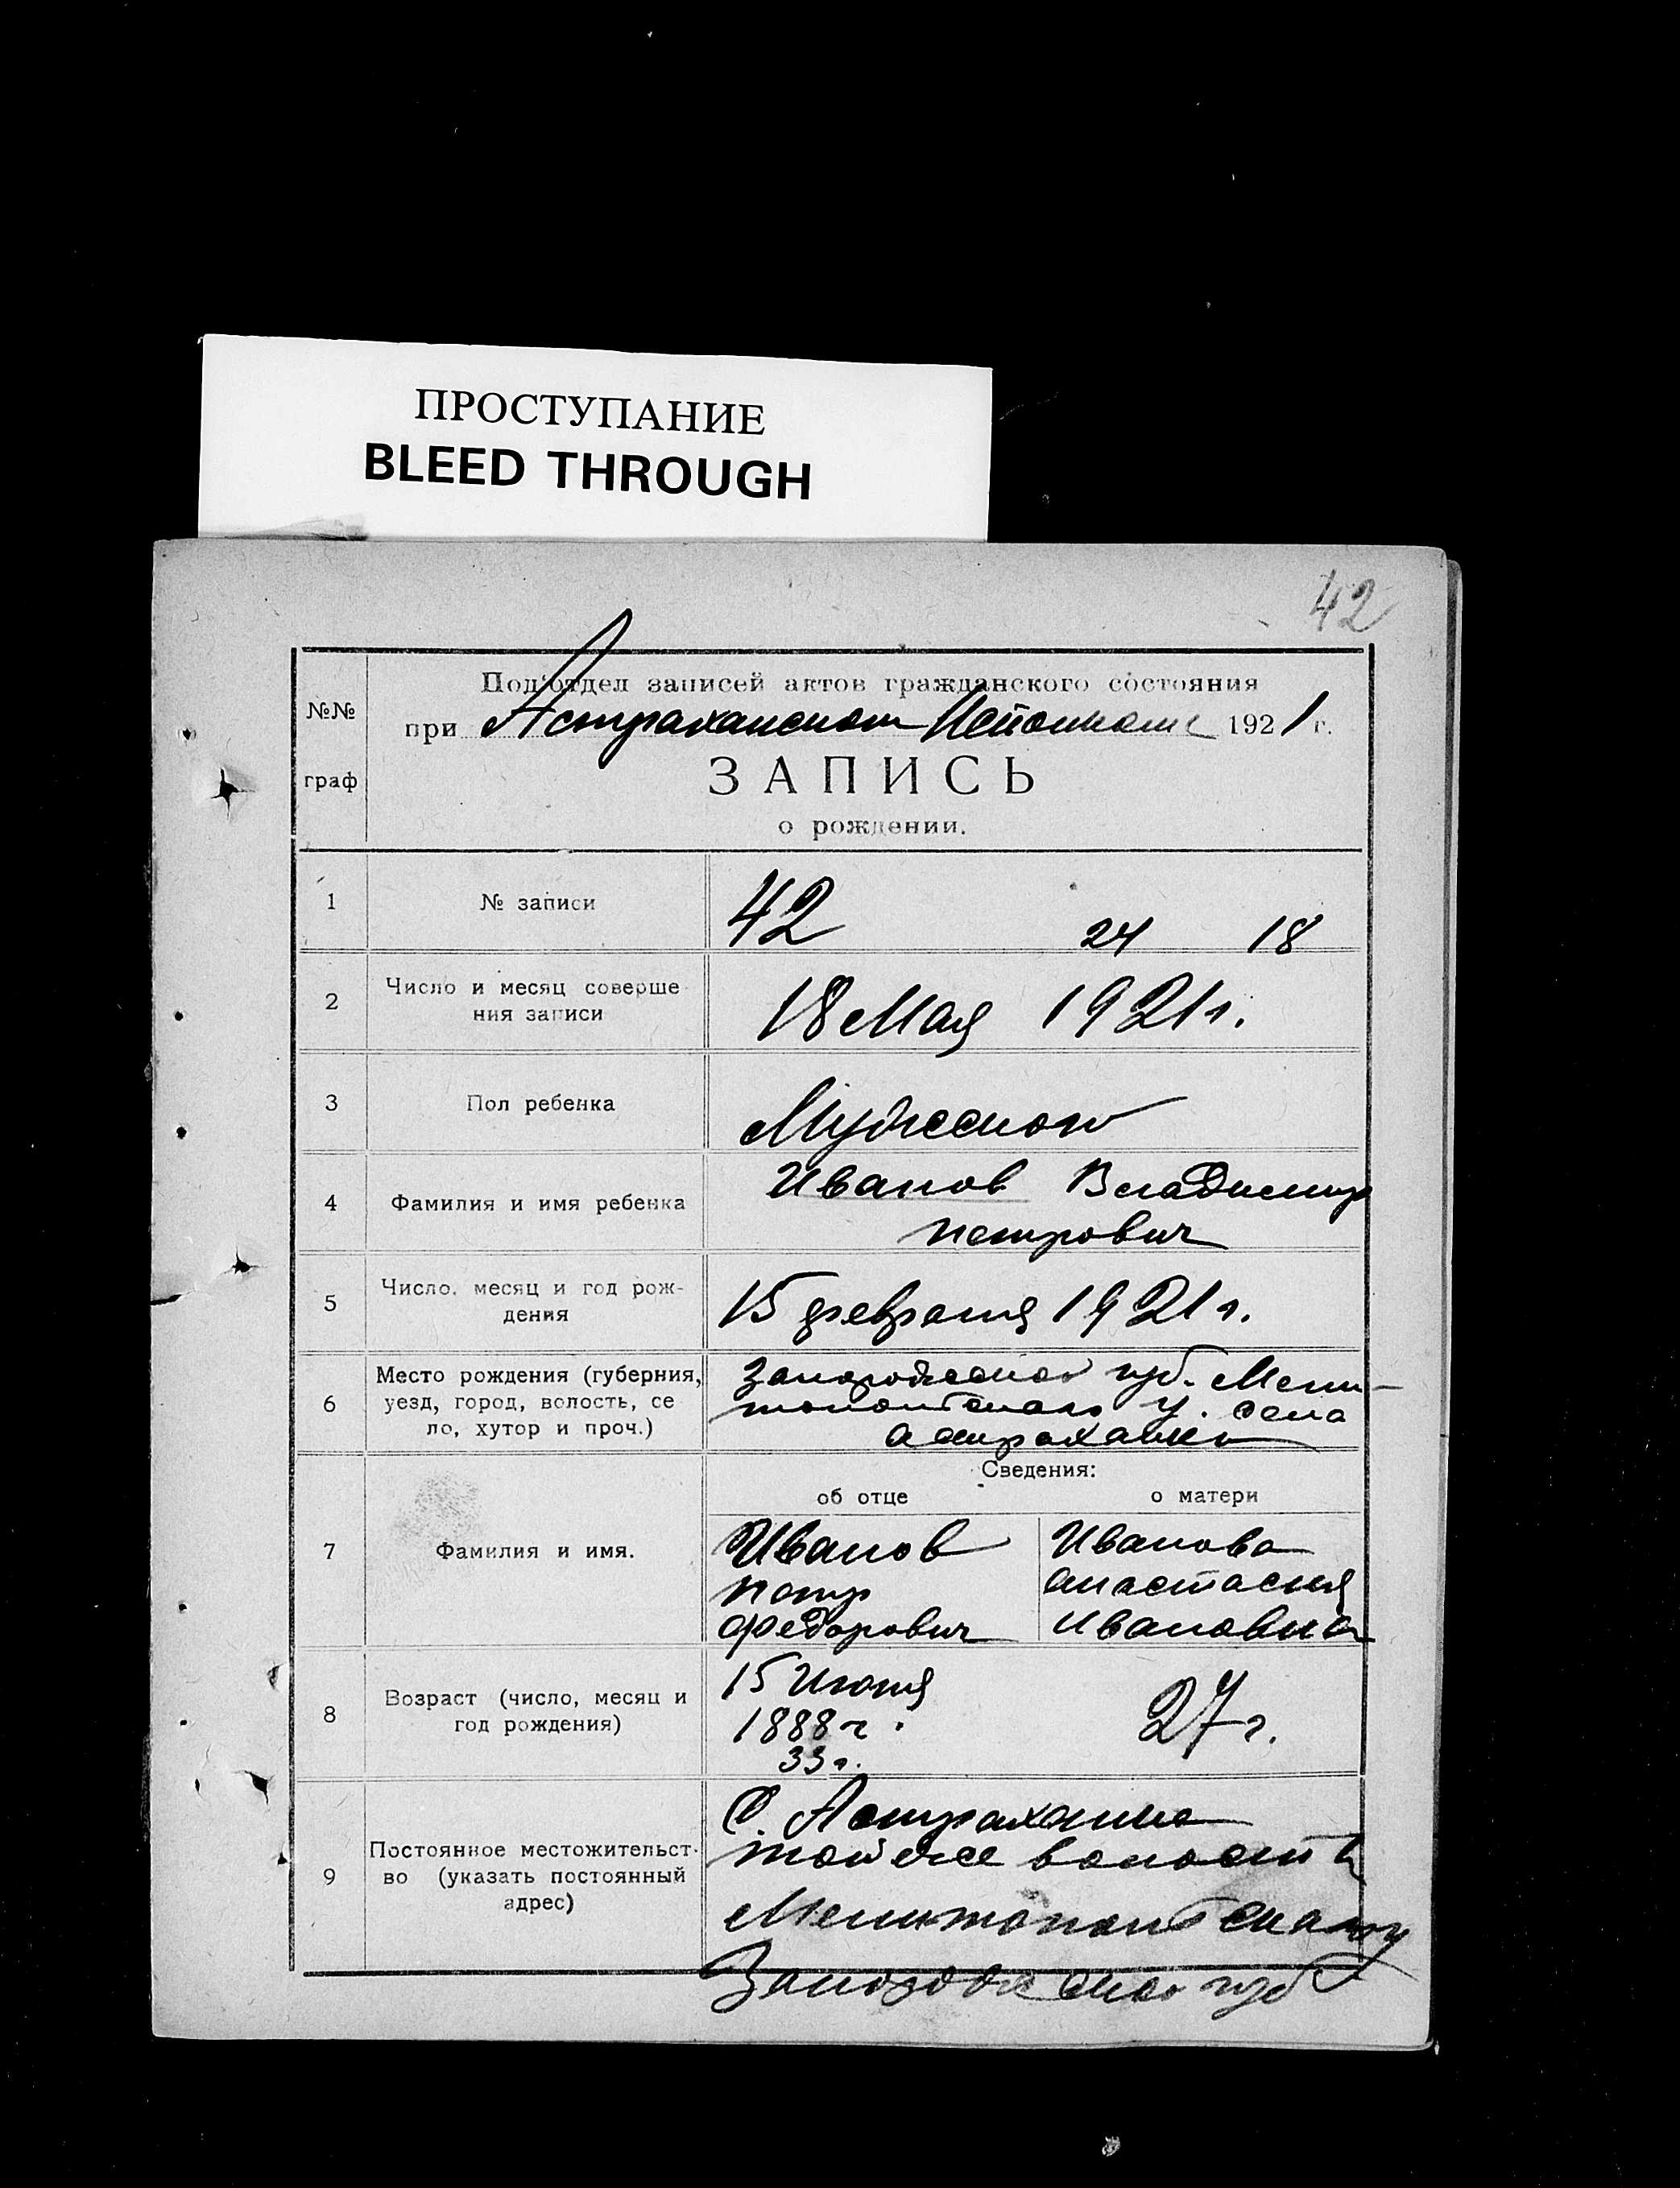 ПРОСТУПАНИЕ
BLEED THROUGH
42
№№
граф
Под'отдел записей актов гражданского состояния
при Астраханском 1921 г.
ЗАПИСЬ
о рождении.
1
№ записи
42 24 18
2
Число и месяц соверше
ния записи
18 Мая 1921 г.
3
Пол ребенка
Мужеской
4
Фамилия и имя ребенка
Иванов Владимир
Петрович
5
Число, месяц и год рож-
дения
15 февраля 1921 г.
6
Место рождения (губерния,
уезд, город, волость, се
ло, хутор и проч.)
Запорожской губ. Мели-
топольского у. села
Астраханки
Сведения:
об отце
о матери
7
Фамилия и имя.
Иванов
Петр
Федорович
Иванова
Анастасия
Ивановна
8
Возраст (число, месяц и
год рождения)
15 Июля
1888 г.
33 г.
27 г.
9
Постоянное местожительст-
во (указать постоянный
адрес)
С. Астраханка
той же волости
Мелитопольского у
Запорожской губ